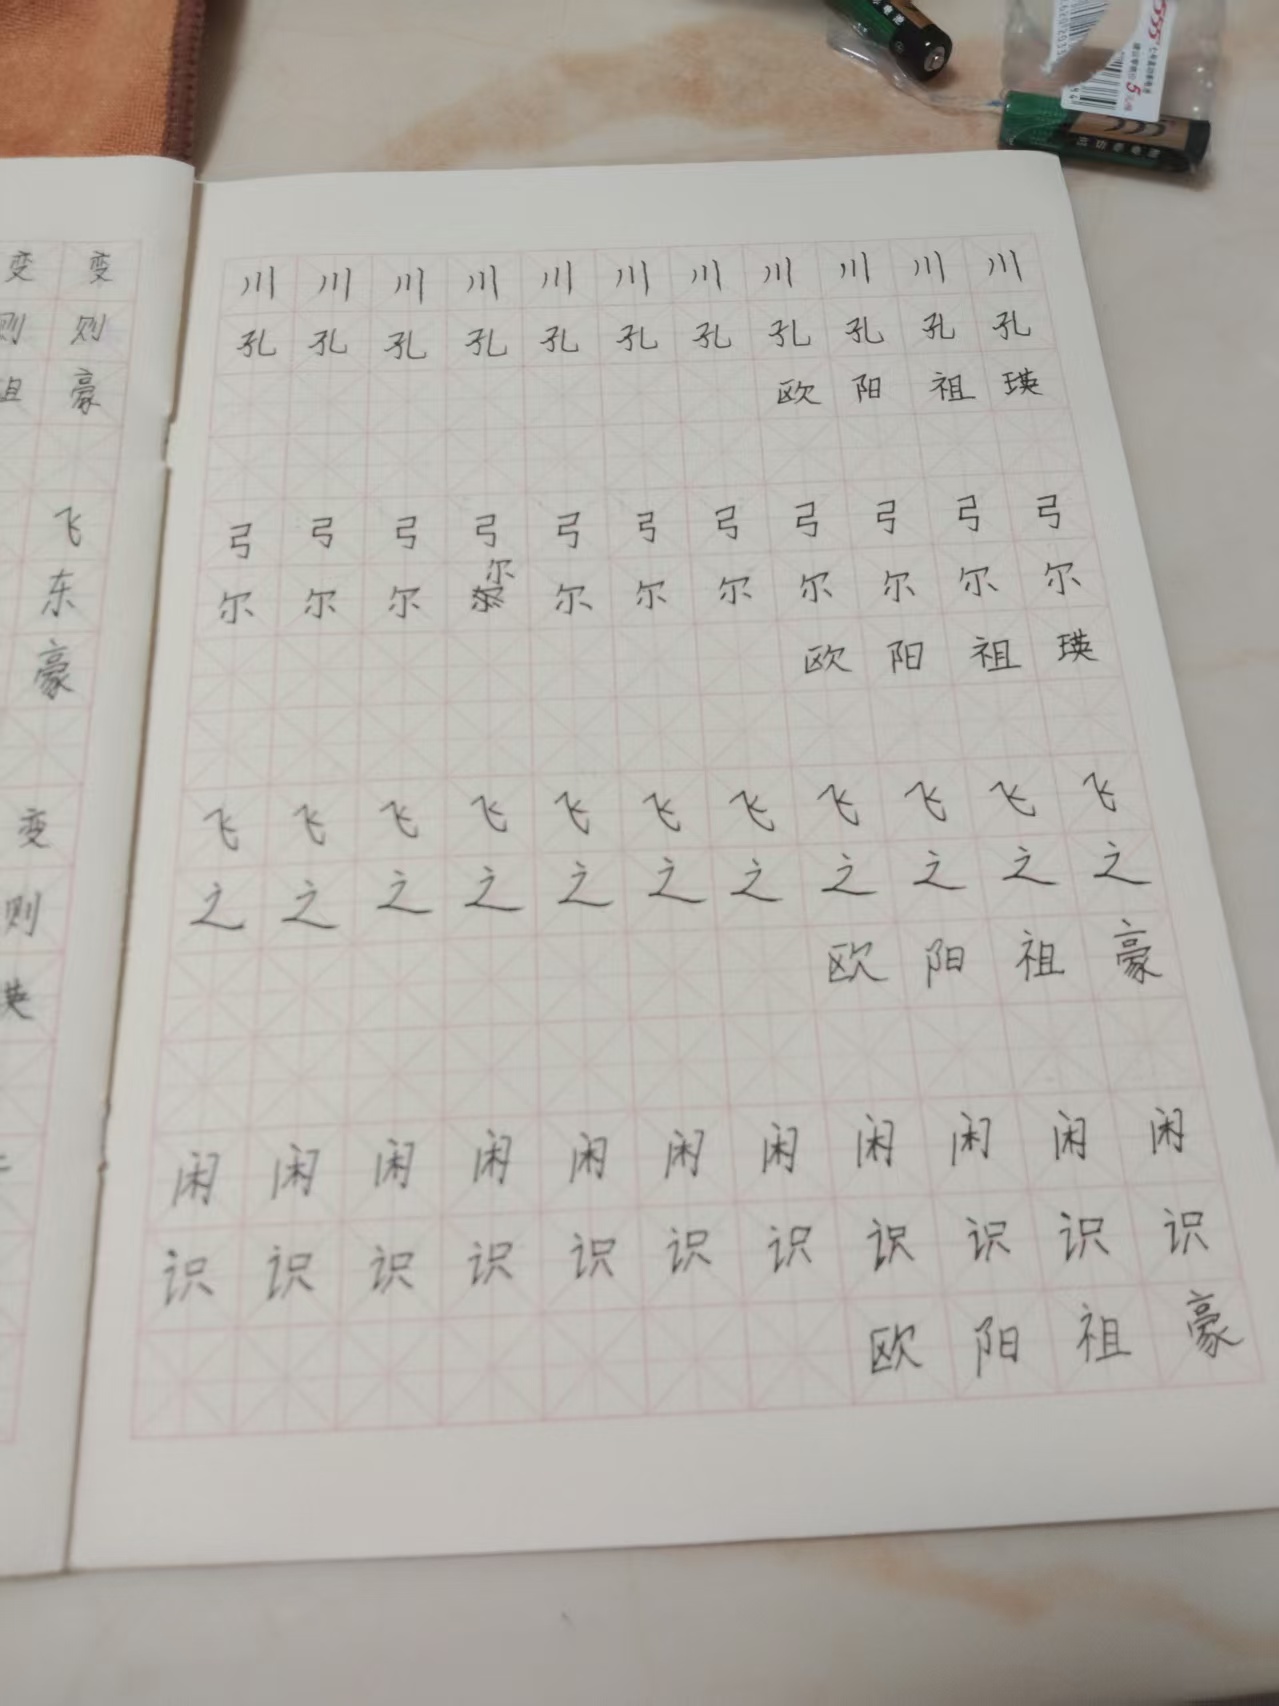 变 变
则 则
祖 豪
飞
东
豪
变
则
英
川 川 川 川 川 川 川 川 川 川 川
孔 孔 孔 孔 孔 孔 孔 孔 孔 孔 孔
欧 阳 祖 瑛
弓 弓 弓 弓 弓 弓 弓 弓 弓 弓 弓
尔 尔 尔 尔 尔 尔 尔 尔 尔 尔 尔
欧 阳 祖 瑛
飞 飞 飞 飞 飞 飞 飞 飞 飞 飞 飞
之 之 之 之 之 之 之 之 之 之 之
欧 阳 祖 豪
闲 闲 闲 闲 闲 闲 闲 闲 闲 闲 闲
识 识 识 识 识 识 识 识 识 识 识
欧 阳 祖 豪
555
5